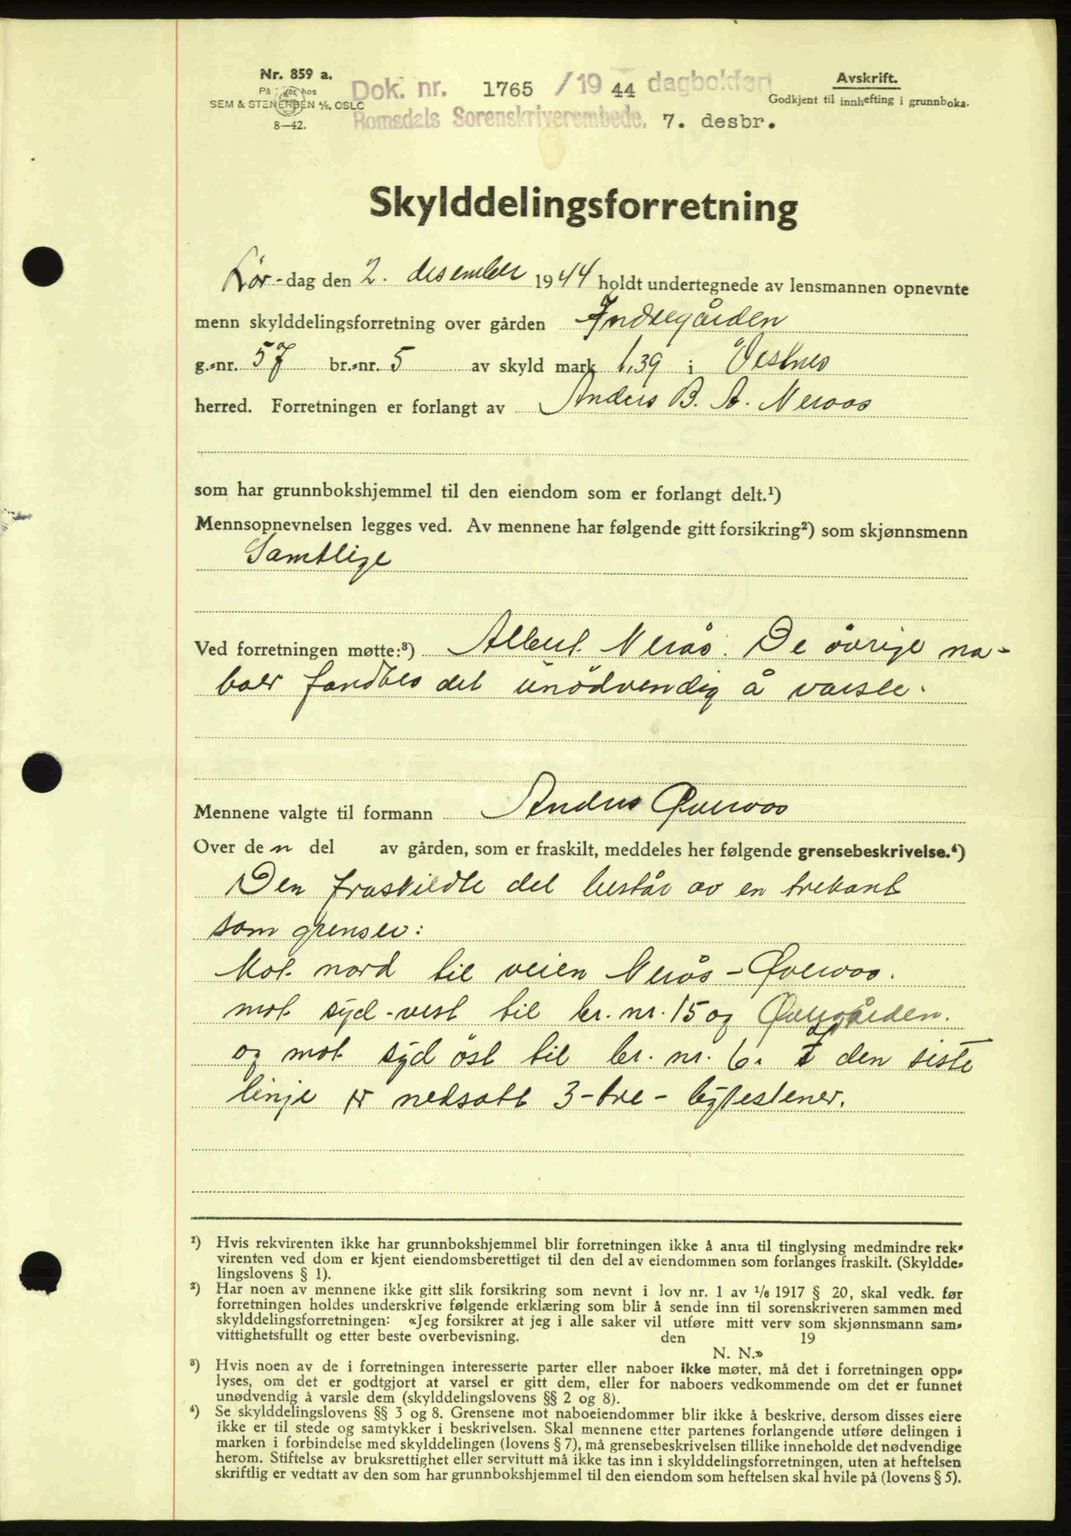 Nr. 859 a.
SEM & STENERSEN A/S, OSLO
8—42.
Dok. nr. 1765 /19 44 dagbokført
Romsdals Sorenskriverembede. 7. desbr.
Avskrift.
Godkjent til innhefting i grunnboka.
Skylddelingsforretning
Lør-dag den 2. desember 1944 holdt undertegnede av lensmannen opnevnte
menn skylddelingsforretning over gården Indregården
g.-nr. 57 br.-nr. 5 av skyld mark 1,39 i Vestnes
herred. Forretningen er forlangt av Anders B. A. Neraas
som har grunnbokshjemmel til den eiendom som er forlangt delt.¹)
Mennsopnevnelsen legges ved. Av mennene har følgende gitt forsikring²) som skjønnsmenn
Samtlige
Ved forretningen møtte:³) Albert Nerås. De övrige na-
boer fandtes det unödvendig å varsle.
Mennene valgte til formann Anders Øveraas
Over de n del av gården, som er fraskilt, meddeles her følgende grensebeskrivelse.⁴)
Den fraskildte del består av en trekant
som grenser:
Mot nord til veien Nerås - Øveraas.
mot syd-vest til br. nr. 15 og Øvergården.
og mot syd öst til br. nr. 6. I den siste
linje er nedsatt 3-tre- bytestener.
¹) Hvis rekvirenten ikke har grunnbokshjemmel blir forretningen ikke å anta til tinglysing medmindre rek-
virenten ved dom er kjent eiendomsberettiget til den del av eiendommen som forlanges fraskilt. (Skyldde-
lingslovens § 1).
²) Har noen av mennene ikke gitt slik forsikring som nevnt i lov nr. 1 av 1/6 1917 § 20, skal vedk. før
forretningen holdes underskrive følgende erklæring som blir å sende inn til sorenskriveren sammen med
skylddelingsforretningen: «Jeg forsikrer at jeg i alle saker vil utføre mitt verv som skjønnsmann sam-
vittighetsfullt og etter beste overbevisning. den 19
N. N.»
³) Hvis noen av de i forretningen interesserte parter eller naboer ikke møter, må det i forretningen opp-
lyses, om det er godtgjort at varsel er gitt dem, eller for naboers vedkommende om det er funnet
unødvendig å varsle dem (skylddelingslovens §§ 2 og 8).
⁴) Se skylddelingslovens §§ 3 og 8. Grensene mot naboeiendommer blir ikke å beskrive, dersom disses eiere
ikke er til stede og samtykker i beskrivelsen. Skal mennene etter partenes forlangende utføre delingen i
marken i forbindelse med skylddelingen (lovens § 7), må grensebeskrivelsen tillike inneholde det nødvendige
herom. Stiftelse av bruksrettighet eller servitutt må ikke tas inn i skylddelingsforretningen, uten at heftelsen
skriftlig er vedtatt av den som har grunnbokshjemmel til den eiendom som heftelsen skal hvile på (lovens § 5).